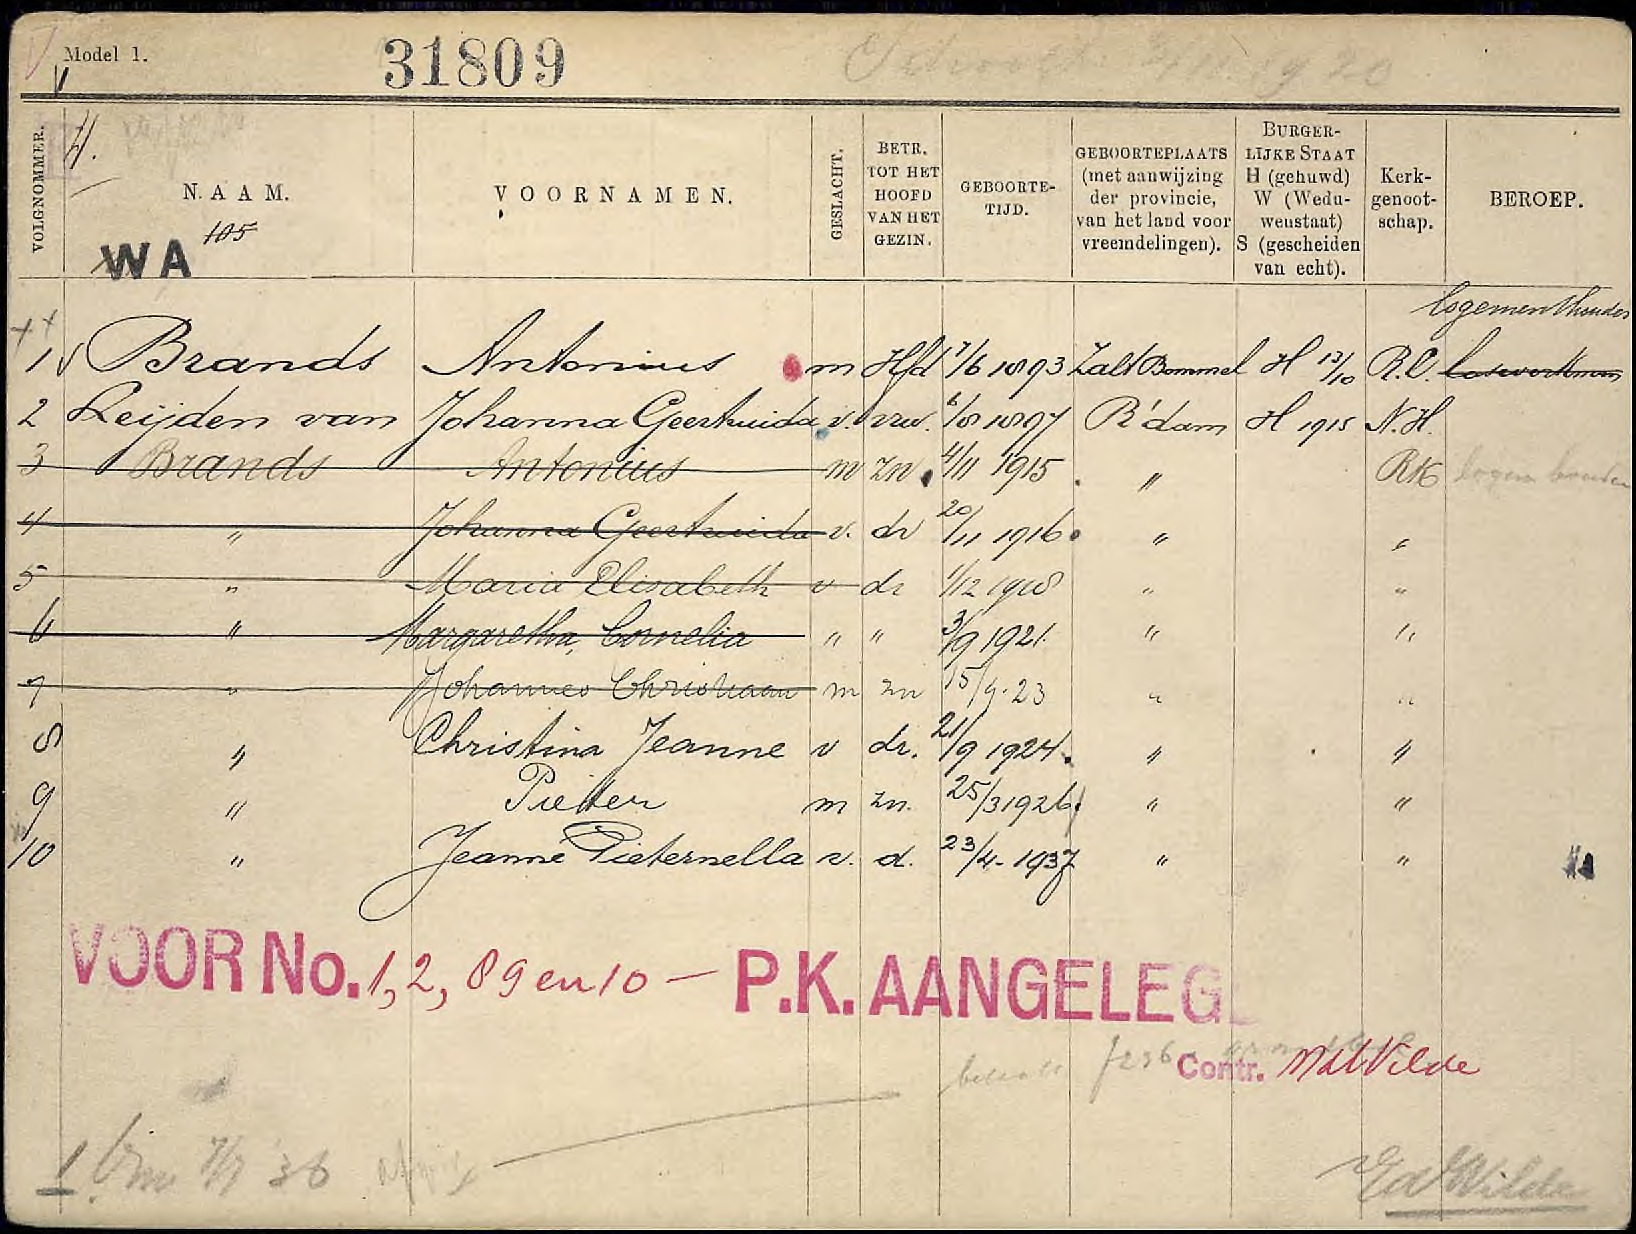 Model 1.
31809
VOLGNOMMER.
NAAM.
VOORNAMEN.
GESLACHT.
BETR. TOT HET HOOFD VAN HET GEZIN.
GEBOORTE-TIJD.
GEBOORTEPLAATS (met aanwijzing der provincie, van het land voor vreemdelingen).
BURGER-LIJKE STAAT H (gehuwd) W (Wedu-weustaat) S (gescheiden van echt).
Kerk-genoot-schap.
BEROEP.
105
WA
logementhouder
1 Brands Antonius m Hfd 7/6 1893 Zalt Bommel H 13/10 R.C. loswerkman
2 Leijden van Johanna Geertruida v. vrw. 6/8 1897 R'dam H 1915 N.H.
3 Brands Antonius m zn. 4/11 1915 " RK
4 " Johanna Geertruida v. dr 20/11 1916 " "
5 " Maria Elisabeth v dr 1/12 1918 " "
6 " Margaretha, Cornelia " " 3/9 1921 " "
7 " Johannes Christiaan m zn 15/9.23 " "
8 " Christina Jeanne v dr. 21/9 1924. " "
9 " Pieter m zn. 25/3 1926 " "
10 " Jeanne Pieternella v. d. 23/4-1937 " "
VOOR No. 1, 2, 8 9 en 10 — P.K. AANGELEGD
Contr. MdWilde
EdWilde